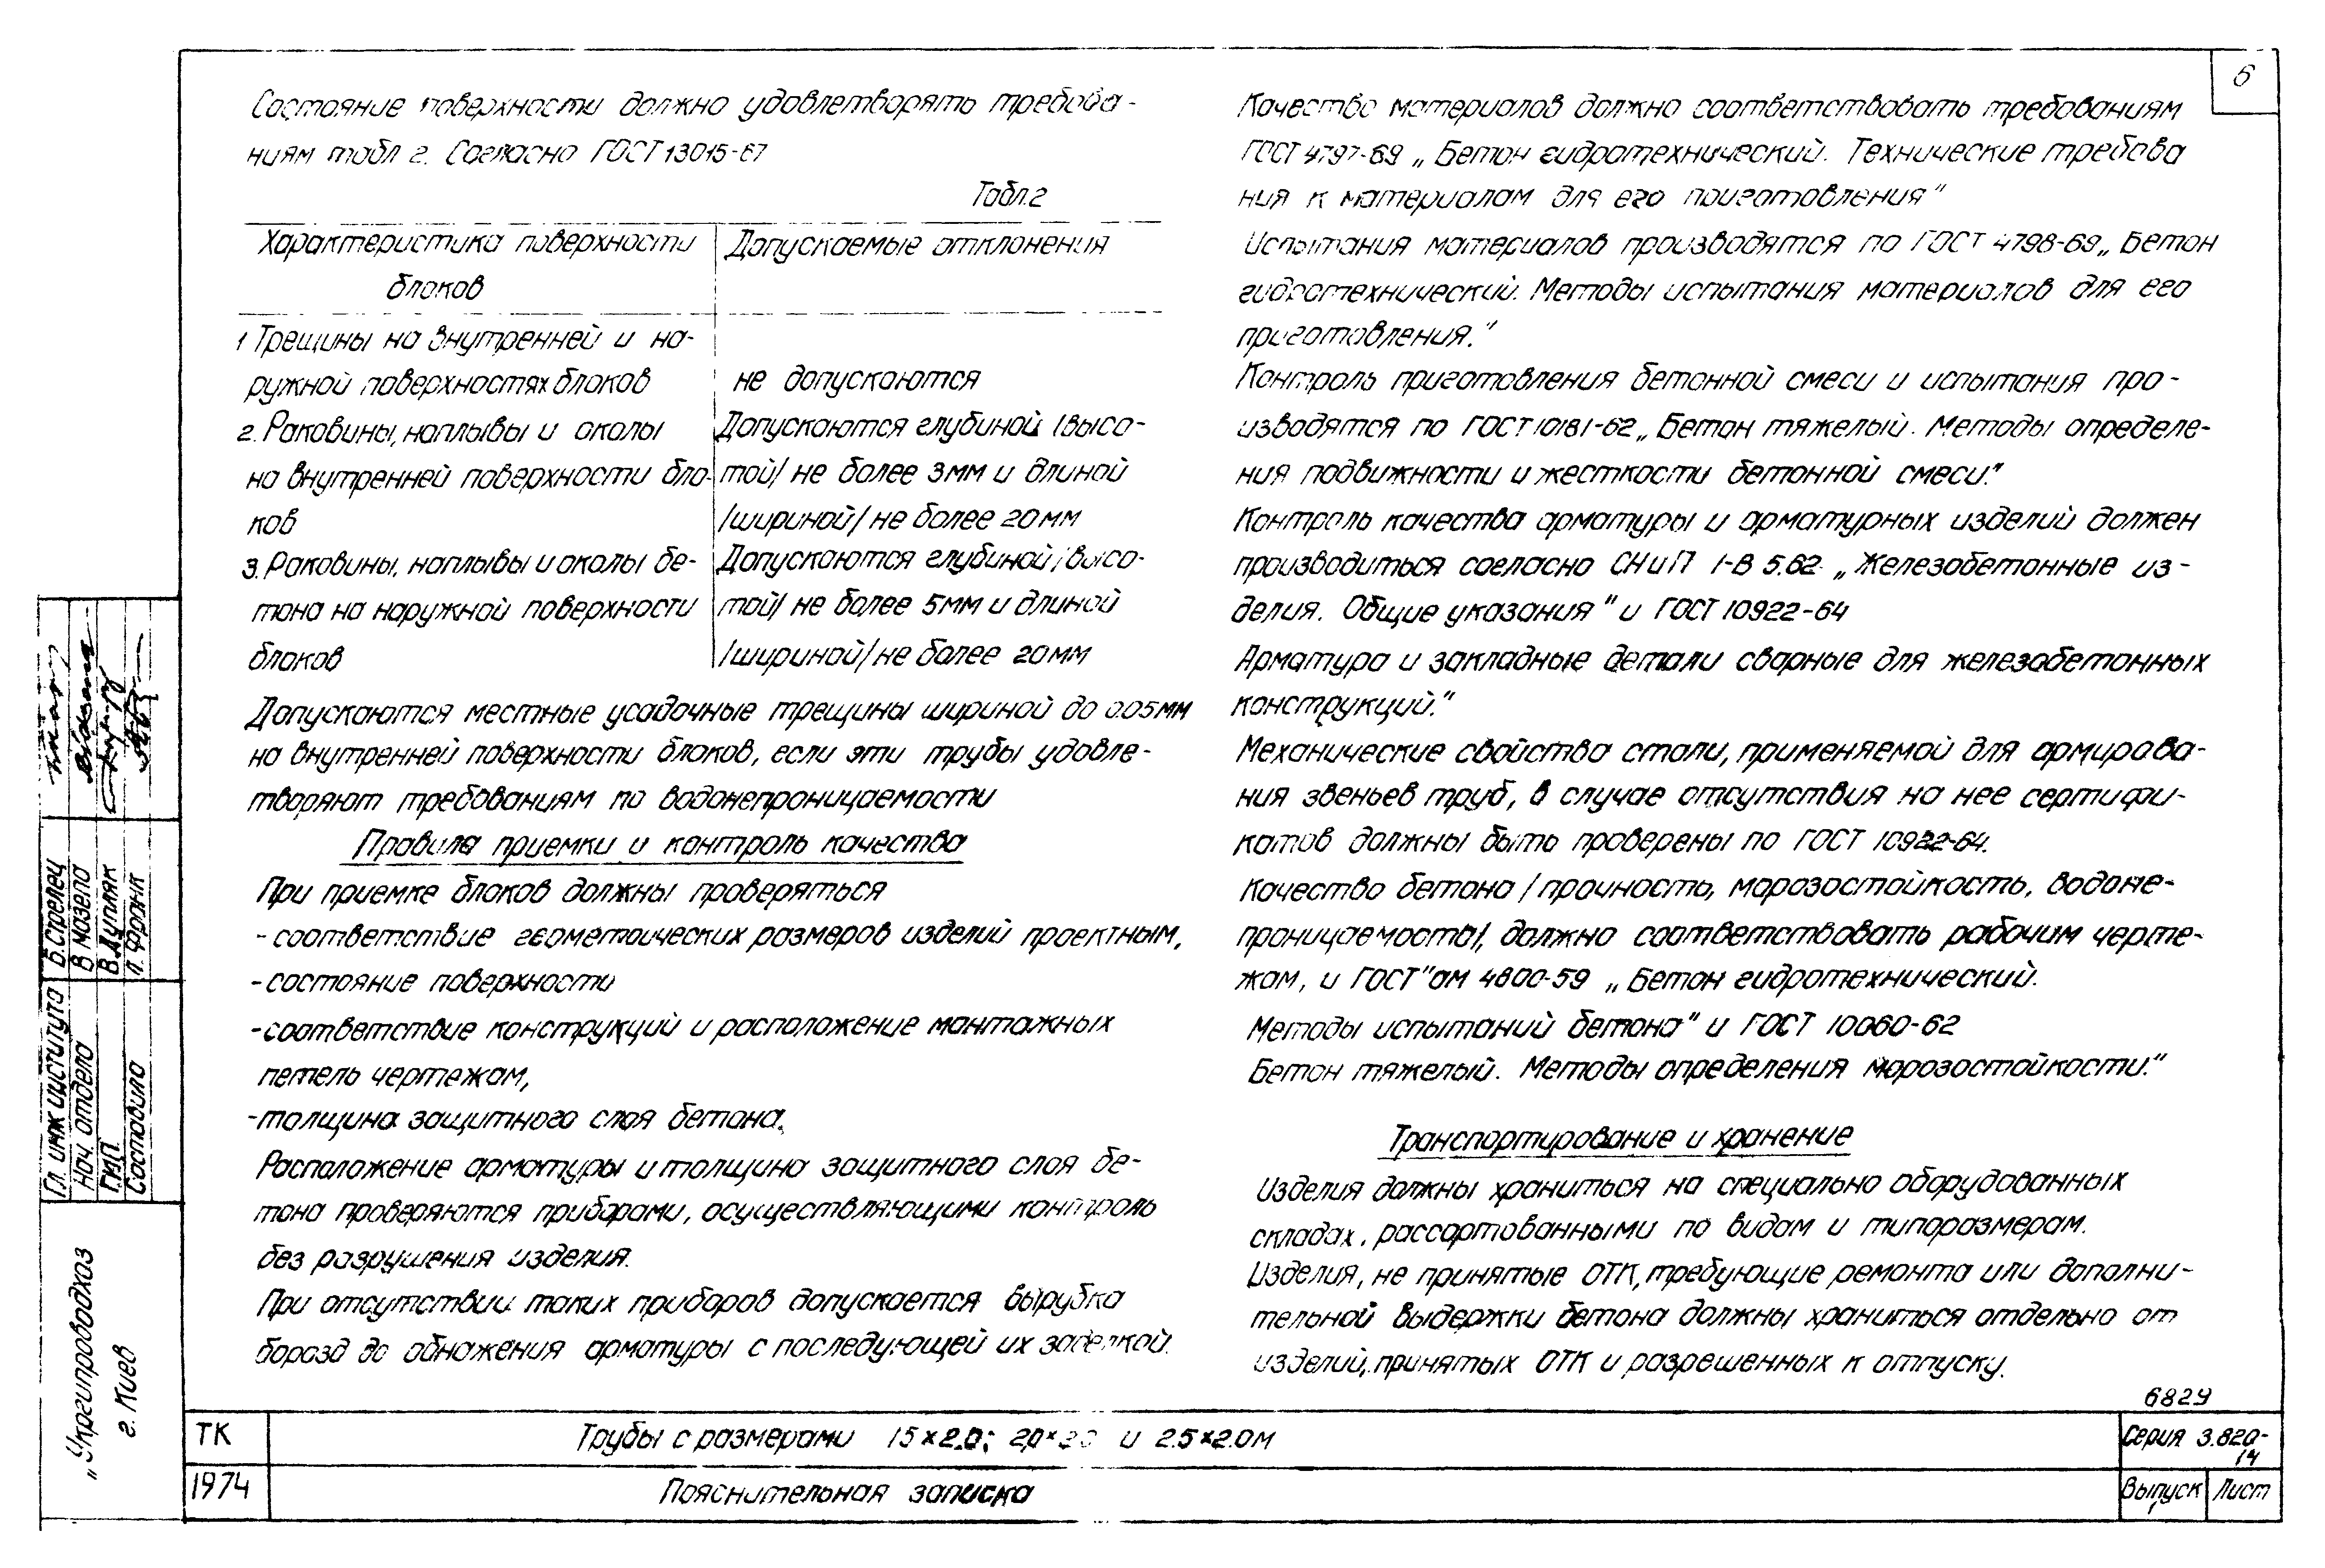 6
Состояние поверхности должно удовлетворять требова-
ниям табл 2. Согласно ГОСТ 13015-67
Табл.2
Характеристика поверхности
блоков
Допускаемые отклонения
1 Трещины на внутренней и на-
ружной поверхностях блоков
не допускаются
2. Раковины, наплывы и околы
на внутренней поверхности бло-
ков
Допускаются глубиной /высо-
той/ не более 3мм и длиной
/шириной/ не более 20мм
3. Раковины, наплывы и околы бе-
тона на наружной поверхности
блоков
Допускаются глубиной /высо-
той/ не более 5мм и длиной
/шириной/ не более 20мм
Допускаются местные усадочные трещины шириной до 0.05мм
на внутренней поверхности блоков, если эти трубы удовле-
творяют требованиям по водонепроницаемости
Правила приемки и контроль качества
При приемке блоков должны проверяться
-соответствие геометрических размеров изделий проектным,
-состояние поверхности
-соответствие конструкций и расположение монтажных
петель чертежам,
-толщина защитного слоя бетона.
Расположение арматуры и толщина защитного слоя бе-
тона проверяются приборами, осуществляющими контроль
без разрушения изделия.
При отсутствии таких приборов допускается вырубка
борозд до обнажения арматуры с последующей их заделкой.
Качество материалов должно соответствовать требованиям
ГОСТ 4797-69 „Бетон гидротехнический. Технические требова
ния к материалам для его приготовления"
Испытания материалов производятся по ГОСТ 4798-69„ Бетон
гидротехнический. Методы испытания материалов для его
приготовления."
Контроль приготовления бетонной смеси и испытания про-
изводятся по ГОСТ 10181-62„ Бетон тяжелый. Методы определе-
ния подвижности и жесткости бетонной смеси."
Контроль качества арматуры и арматурных изделий должен
производиться согласно СНиП I-В 5.62. „Железобетонные из-
делия. Общие указания" и ГОСТ 10922-64
Арматура и закладные детали сварные для железобетонных
конструкций."
Механические свойства стали, применяемой для армирова-
ния звеньев труб, в случае отсутствия на нее сертифи-
катов должны быть проверены по ГОСТ 10922-64.
Качество бетона /прочность, морозостойкость, водоне-
проницаемость/, должно соответствовать рабочим черте-
жам, и ГОСТ"ам 4800-59 „Бетон гидротехнический.
Методы испытаний бетона" и ГОСТ 10060-62
Бетон тяжелый. Методы определения морозостойкости."
Транспортирование и хранение
Изделия должны храниться на специально оборудованных
складах, рассортованными по видам и типоразмерам.
Изделия, не принятые ОТК, требующие ремонта или дополни-
тельной выдержки бетона должны храниться отдельно от
изделий, принятых ОТК и разрешенных к отпуску.
6829
ТК
1974
Трубы с размерами 1.5×2.0; 2.0×2.0 и 2.5×2.0м
Пояснительная записка
Серия 3.820-
14
Выпуск
1
Лист
Гл. инж института Б. Стрелец
Нач. отдела В Мазепа
ГИП В. Дупляк
Составила Л. Франк
„Укргипроводхоз
г. Киев